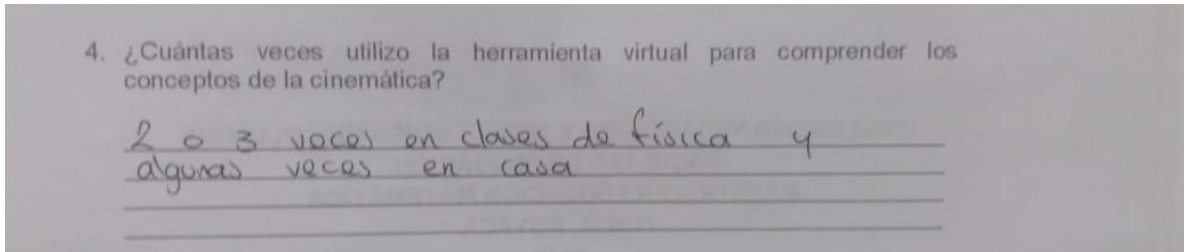 4. ¿Cuántas veces utilizo la herramienta virtual para comprender los
conceptos de la cinemática?
2 o 3 veces en clases de física y
algunas veces en casa